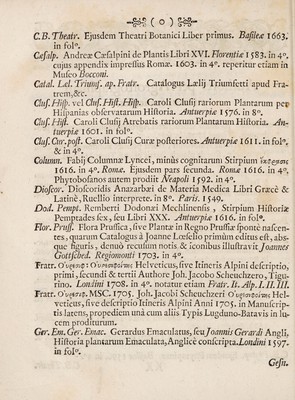 ( o )
C.B. Theatr. Ejusdem Theatri Botanici Liber primus. Basileæ 1663.
in folº.
Cæsalp. Andreæ Cæsalpini de Plantis Libri XVI. Florentiæ 1583. in 4º.
cujus appendix impressus Romæ. 1603. in 4º. reperitur etiam in
Museo Bocconi.
Catal. Lel. Triumf. ap. Fratr. Catalogus Lælij Triumfetti apud Fra-
trem,&c.
Clus. Hisp. vel Clus. Hist. Hisp. Caroli Clusij rariorum Plantarum per
Hispanias observatarum Historia. Antuerpiæ 1576. in 8º.
Clus. Hist. Caroli Clusij Atrebatis rariorum Plantarum Historia. An-
tuerpiæ 1601. in folº.
Clus. Cur. post. Caroli Clusij Curæ posteriores. Antuerpiæ 1611. in folº.
& in 4º.
Column. Fabij Columnæ Lyncei, minùs cognitarum Stirpium
1616. in 4º. Romæ. Ejusdem pars secunda. Romæ 1616. in 4º.
Phytobasanos autem prodiit Neapoli 1592. in 4º.
Dioscor. Dioscoridis Anazarbæi de Materia Medica Libri Græcè &
Latinè, Ruellio interprete. in 8º. Paris. 1549.
Dod. Pempt. Remberti Dodonæi Mechliniensis, Stirpium Historiæ
Pemptades sex, seu Libri XXX. Antuerpiæ 1616. in folº.
Flor. Pruss. Flora Prussica, sive Plantæ in Regno Prussiæ spontè nascen-
tes, quarum Catalogum à Joanne Lœselio primùm editus est, abs-
que figuris, denuò recusum notis & iconibus illustravit Joannes
Gottsched. Regiomonti 1703. in 4º.
Fratr. Helveticus, five Itineris Alpini descriptio,
primi, secundi & tertii Authore Joh. Jacobo Scheuchzero, Tigu-
rino. Londini 1708. in 4º. notatur etiam Fratr. It. Alp. I. II. III.
Fratr. MSC. 1705. Joh. Jacobi Scheuchzeri Hel-
veticus, five descriptio Itineris Alpini Anni 1705. in Manuscrip-
tis latens, propediem unà cum aliis Typis Lugduno-Batavis in lu-
cem proditurum.
Ger. Em. Ger. Emac. Gerardus Emaculatus, seu Joannis Gerardi Angli,
Historia plantarum Emaculata, Anglicè conscripta. Londini 1597.
in folº.
Gesn.